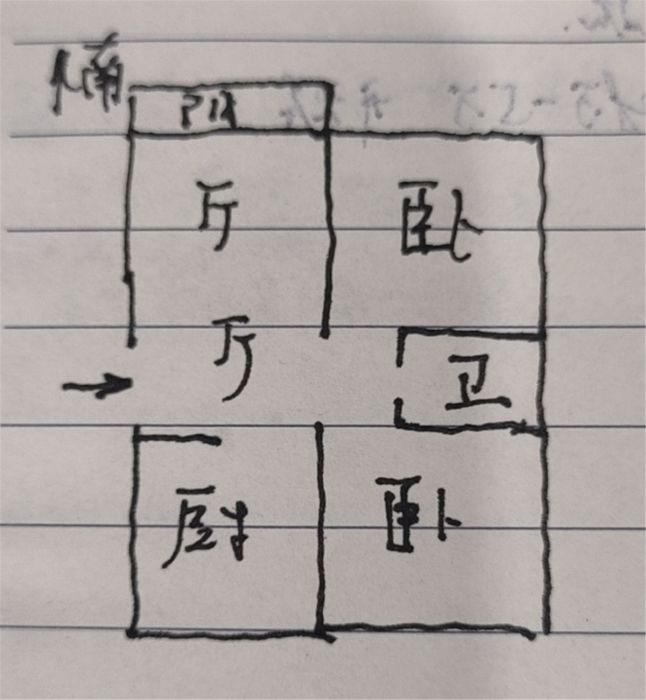 南
阳
厅
卧
厅
卫
厨
卧